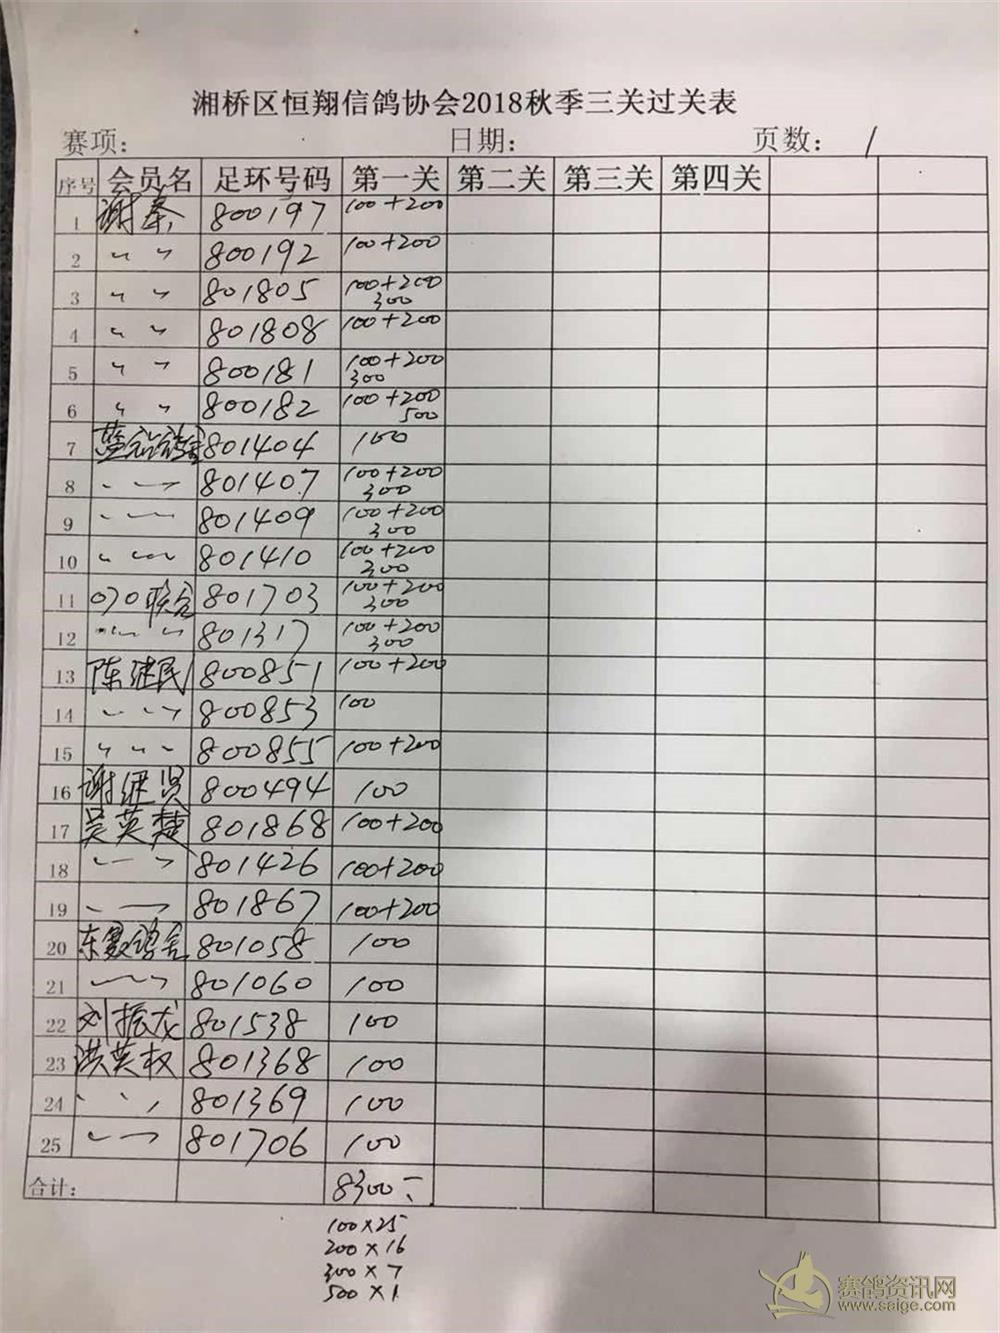 湘桥区恒翔信鸽协会2018秋季三关过关表
赛项: 日期: 页数: 1
序号 会员名 足环号码 第一关 第二关 第三关 第四关
1 谢秦 800197 100+200
2 〃 〃 800192 100+200
3 〃 〃 801805 100+200 300
4 〃 〃 801808 100+200
5 〃 〃 800181 100+200 300
6 〃 〃 800182 100+200 500
7 801404 100
8 〃 〃 801407 100+200 300
9 〃 〃 801409 100+200 300
10 〃 〃 801410 100+200 300
11 070联合 801703 100+200 300
12 〃 〃 801317 100+200 300
13 陈继民 800851 100+200
14 〃 〃 800853 100
15 〃 〃 〃 800855 100+200
16 谢继贤 800494 100
17 吴英楚 801868 100+200
18 〃 〃 801426 100+200
19 〃 〃 801867 100+200
20 801058 100
21 〃 〃 801060 100
22 刘振龙 801538 100
23 洪英权 801368 100
24 〃 〃 801369 100
25 〃 〃 801706 100
合计: 8300-
100×25
200×16
300×7
500×1
赛鸽资讯网
www.saige.com